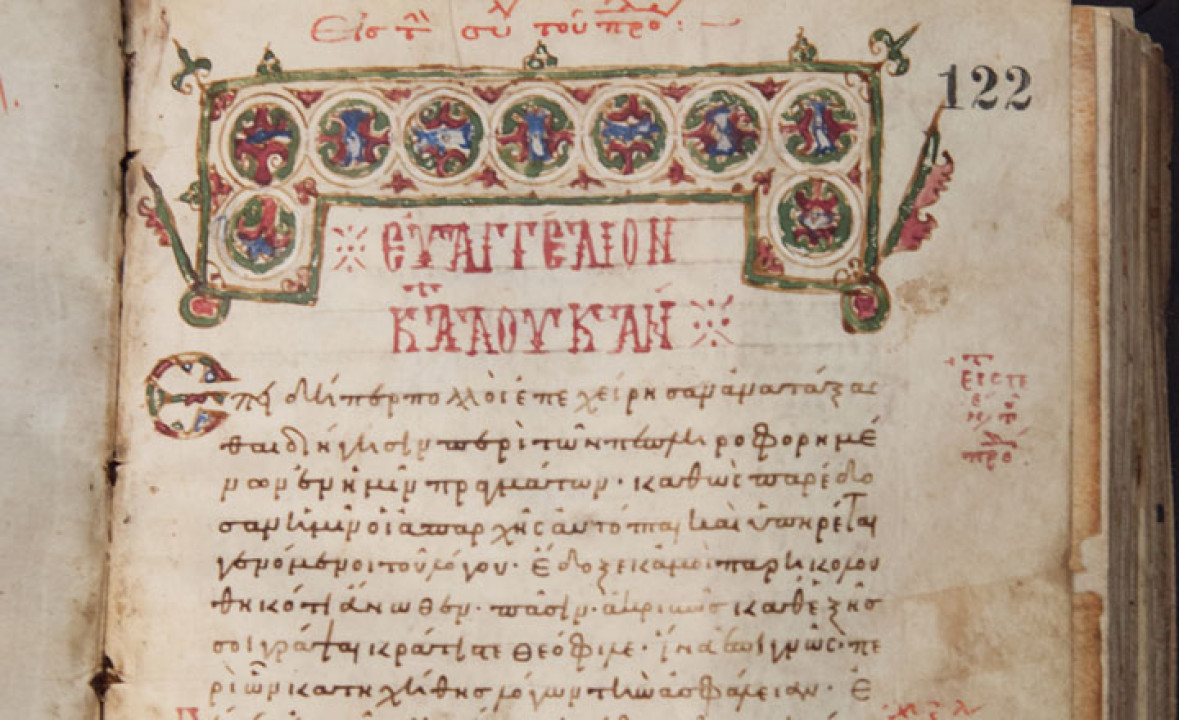 Εἰς τ συ τοῦ προ:
122
※ ΕΥΑΓΓΕΛΙΟΝ
ΚΑΤ ΛΟΥΚΑΝ ※
Ἐπειδήπερ πολλοὶ ἐπεχείρησαν ἀνατάξα
σθαι διήγησιν περὶ τῶν πεπληροφορημέ
νων ἐν ἡμῖν πραγμάτων· καθὼς παρέδο
σαν ἡμῖν οἱ ἀπαρχῆς αὐτόπται καὶ ὑπηρέται
γενόμενοι τοῦ λόγου· Ἔδοξε κἀμοὶ παρηκολου
θηκότι ἄνωθεν· πᾶσιν· ἀκριβῶς καθεξῆς
σοι γράψαι κράτιστε Θεόφιλε· ἵνα ἐπιγνῶς· πε
ρὶ ὧν κατηχήθης λόγων τὴν ἀσφάλειαν· Ἐ